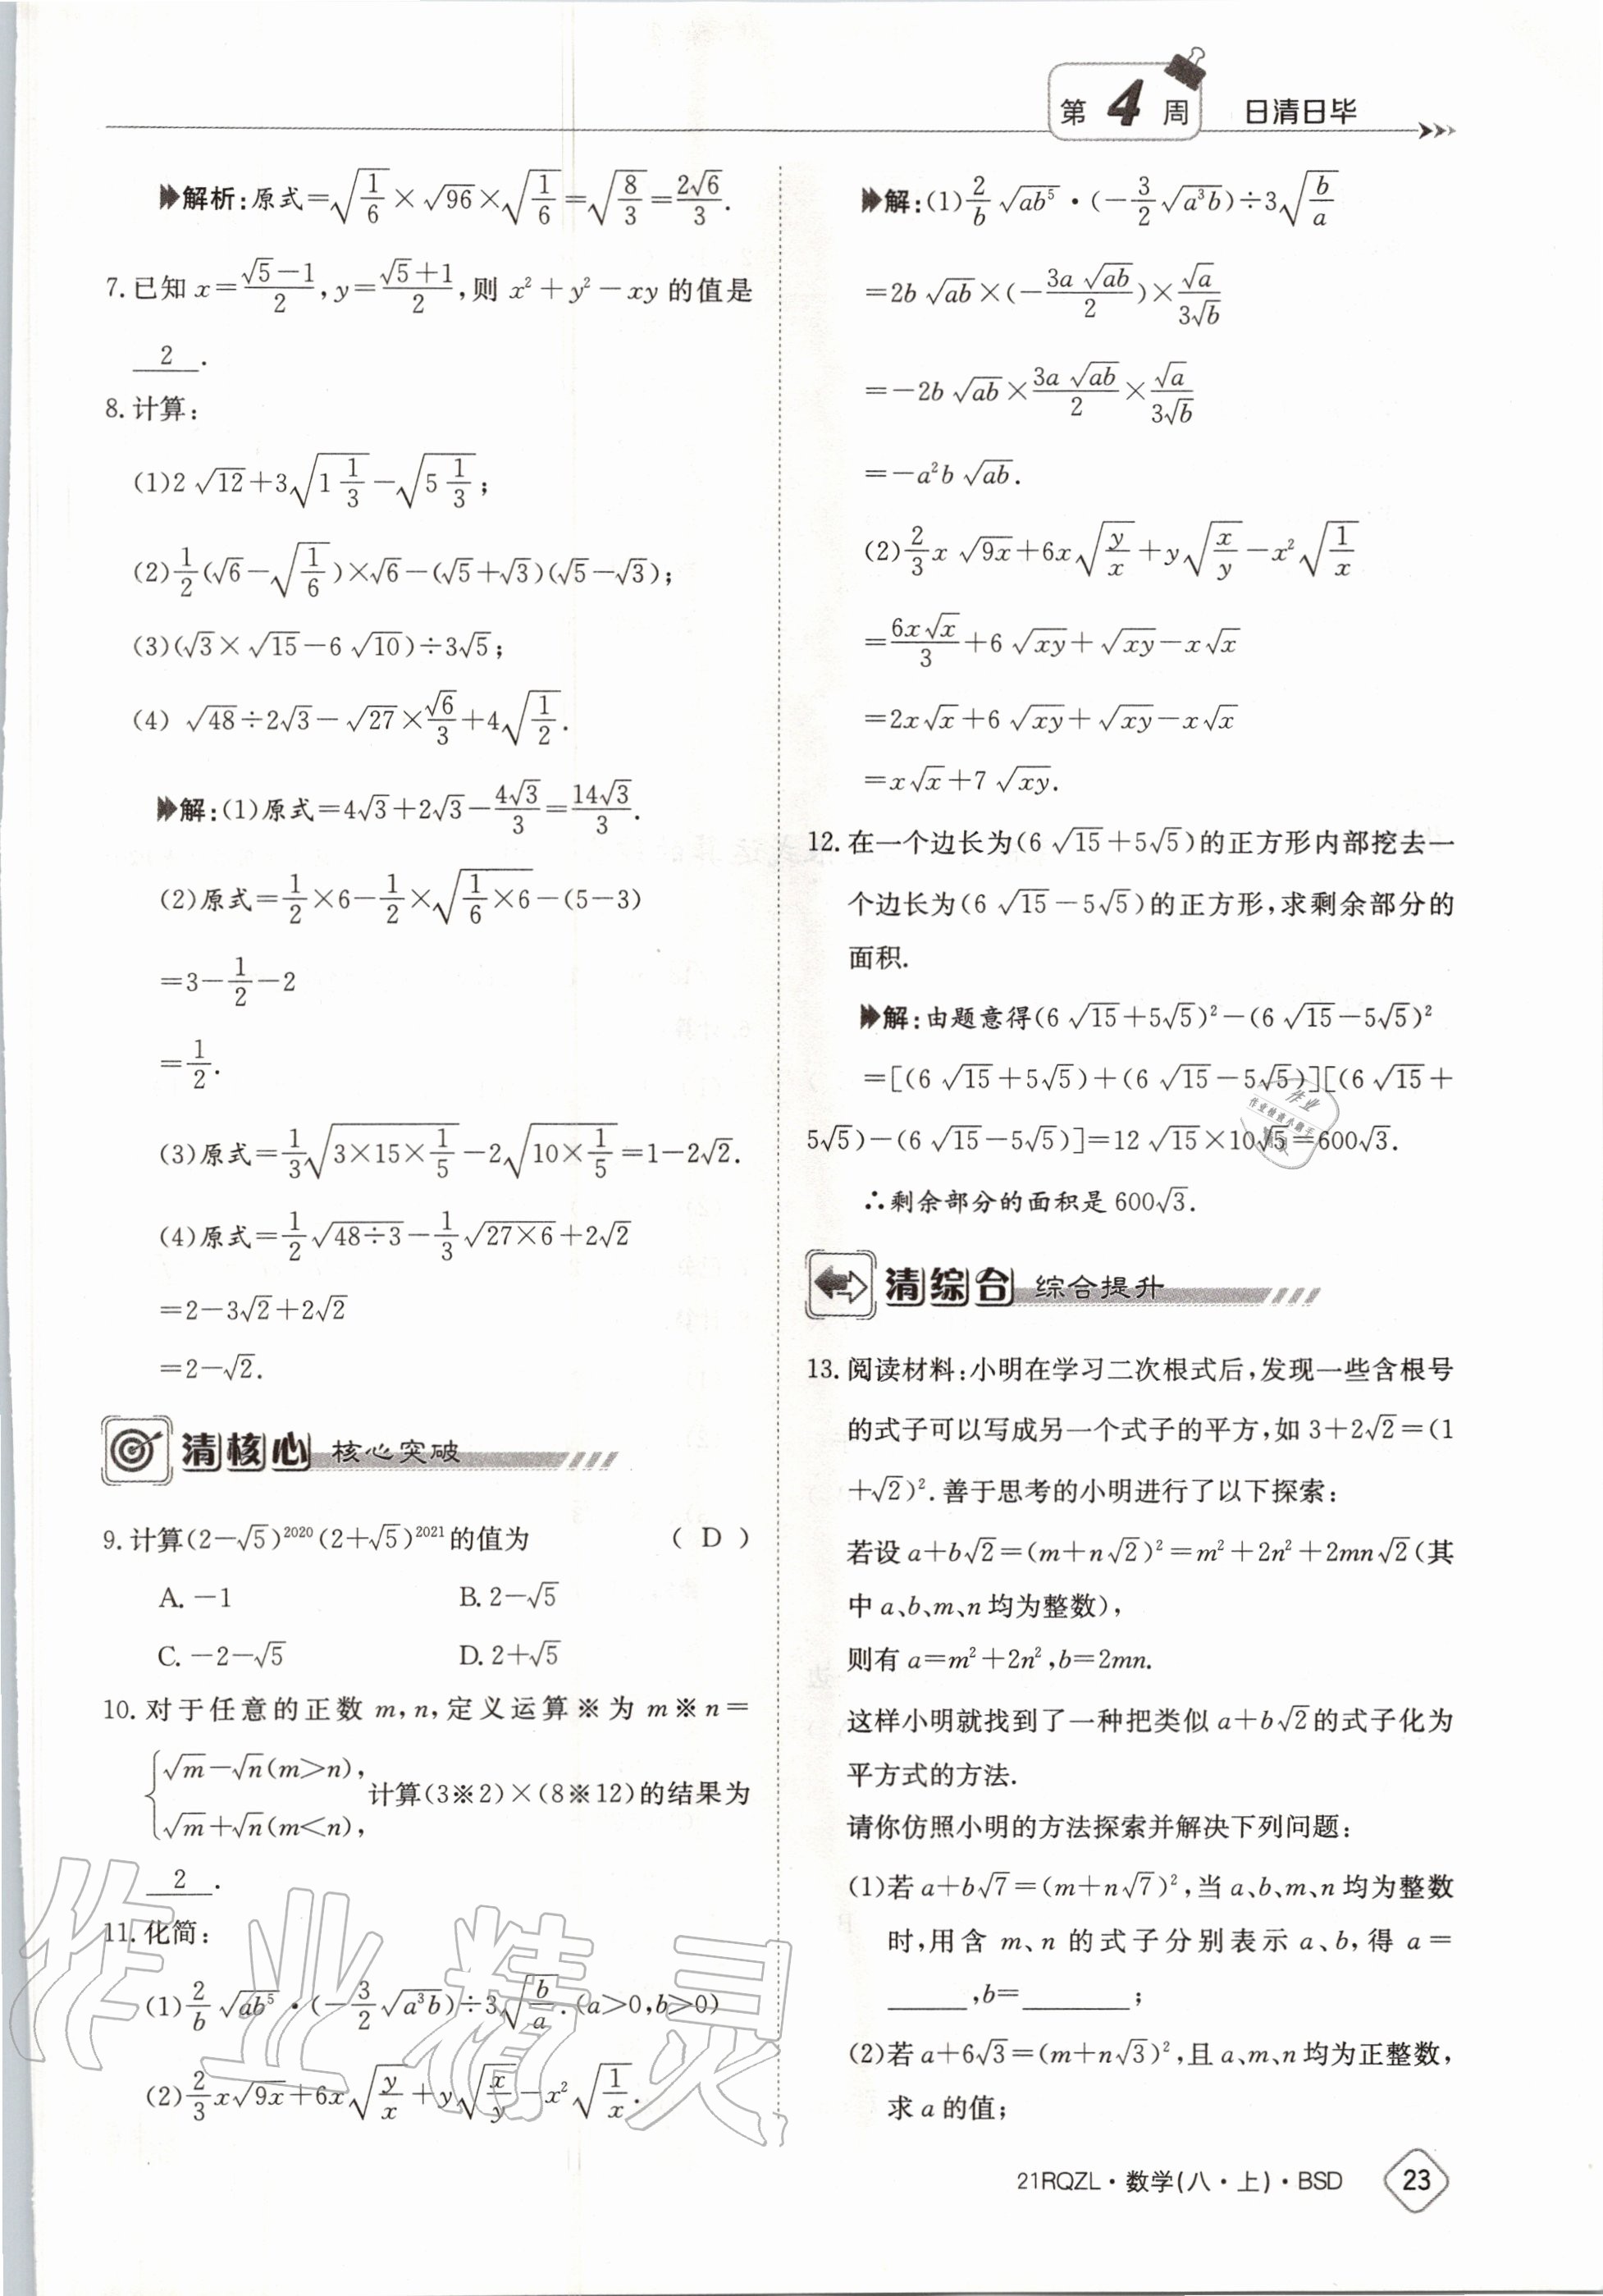 第4周 日清日毕
解析:原式=√(1/6)×√96×√(1/6)=√(8/3)=2√6/3.
7.已知 x=(√5-1)/2,y=(√5+1)/2,则 x²+y²-xy 的值是
2.
8.计算:
(1)2√12+3√(1 1/3)-√(5 1/3);
(2)1/2(√6-√(1/6))×√6-(√5+√3)(√5-√3);
(3)(√3×√15-6√10)÷3√5;
(4)√48÷2√3-√27×√6/3+4√(1/2).
解:(1)原式=4√3+2√3-4√3/3=14√3/3.
(2)原式=1/2×6-1/2×√(1/6×6)-(5-3)
=3-1/2-2
=1/2.
(3)原式=1/3√(3×15×1/5)-2√(10×1/5)=1-2√2.
(4)原式=1/2√(48÷3)-1/3√(27×6)+2√2
=2-3√2+2√2
=2-√2.
清核心 核心突破
9.计算(2-√5)²⁰²⁰(2+√5)²⁰²¹的值为 ( D )
A.-1 B.2-√5
C.-2-√5 D.2+√5
10.对于任意的正数 m,n,定义运算※为 m※n=
{√m-√n(m>n),
√m+√n(m<n), 计算(3※2)×(8※12)的结果为
2.
11.化简:
(1)2/b√(ab⁵)·(-3/2√(a³b))÷3√(b/a).(a>0,b>0)
(2)2/3x√(9x)+6x√(y/x)+y√(x/y)-x²√(1/x).
解:(1)2/b√(ab⁵)·(-3/2√(a³b))÷3√(b/a)
=2b√(ab)×(-3a√(ab)/2)×√a/(3√b)
=-2b√(ab)×3a√(ab)/2×√a/(3√b)
=-a²b√(ab).
(2)2/3x√(9x)+6x√(y/x)+y√(x/y)-x²√(1/x)
=6x√x/3+6√(xy)+√(xy)-x√x
=2x√x+6√(xy)+√(xy)-x√x
=x√x+7√(xy).
12.在一个边长为(6√15+5√5)的正方形内部挖去一
个边长为(6√15-5√5)的正方形,求剩余部分的
面积.
解:由题意得(6√15+5√5)²-(6√15-5√5)²
=[(6√15+5√5)+(6√15-5√5)][(6√15+
5√5)-(6√15-5√5)]=12√15×10√5=600√3.
∴剩余部分的面积是 600√3.
清综合 综合提升
13.阅读材料:小明在学习二次根式后,发现一些含根号
的式子可以写成另一个式子的平方,如 3+2√2=(1
+√2)².善于思考的小明进行了以下探索:
若设 a+b√2=(m+n√2)²=m²+2n²+2mn√2(其
中 a、b、m、n 均为整数),
则有 a=m²+2n²,b=2mn.
这样小明就找到了一种把类似 a+b√2的式子化为
平方式的方法.
请你仿照小明的方法探索并解决下列问题:
(1)若 a+b√7=(m+n√7)²,当 a、b、m、n 均为整数
时,用含 m、n 的式子分别表示 a、b,得 a=
______,b=________;
(2)若 a+6√3=(m+n√3)²,且 a、m、n 均为正整数,
求 a 的值;
21RQZL·数学(八·上)·BSD 23
作业精灵